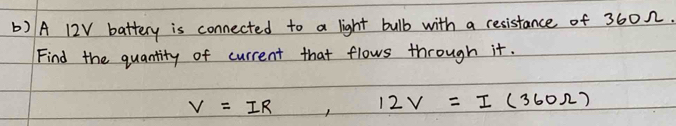 b) A 12V battery is connected to a light bulb with a resistance of 360Ω.
Find the quantity of current that flows through it.
V = IR , 12V = I (360Ω)